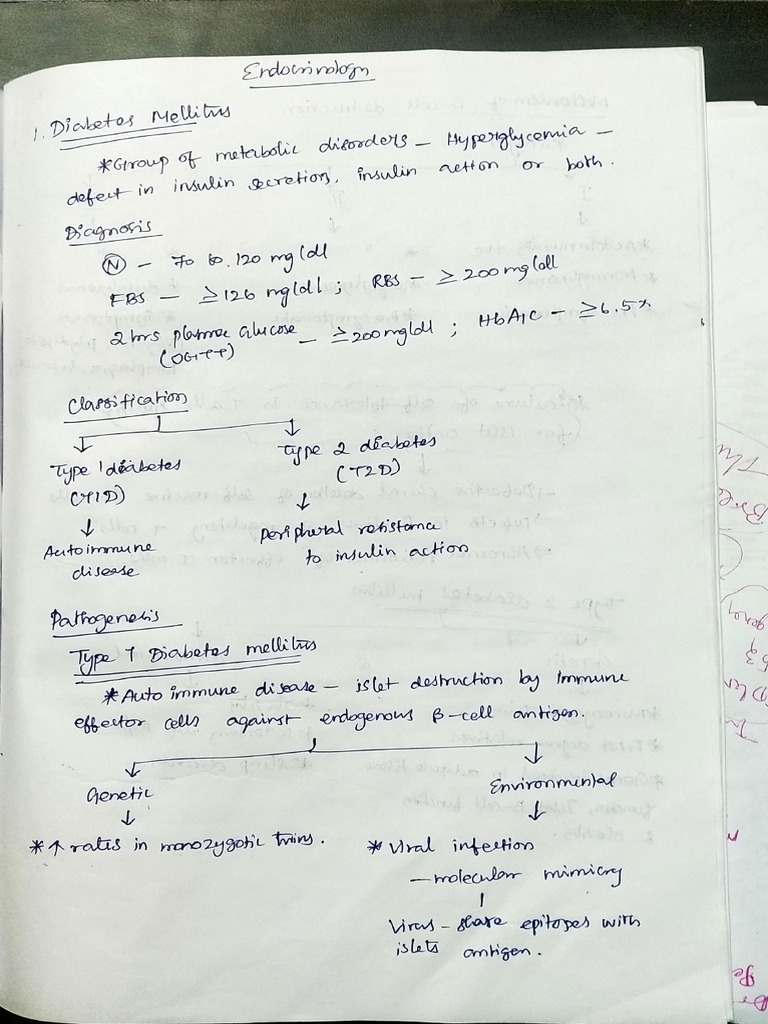 Endocrinology
1. Diabetes Mellitus
*Group of metabolic disorders – Hyperglycemia –
defect in insulin secretion, insulin action or both.
Diagnosis
Ⓝ – 70 to 120 mg/dl
FBS – ≥126 mg/dl ; RBS – ≥200mg/dl
2 hrs plasma Glucose – ≥200mg/dl ; HbA1C – ≥6.5%
(OGTT)
Classification
Type 1 diabetes Type 2 diabetes
(T1D) (T2D)
↓ ↓
Autoimmune Peripheral resistance
disease to insulin action
Pathogenesis
Type 1 Diabetes mellitus
*Auto immune disease – islet destruction by immune
effector cells against endogenous β-cell antigen.
Genetic Environmental
↓ ↓
*↑ rates in monozygotic twins. * Viral infection
– molecular mimicry
Virus – share epitopes with
islets antigen.